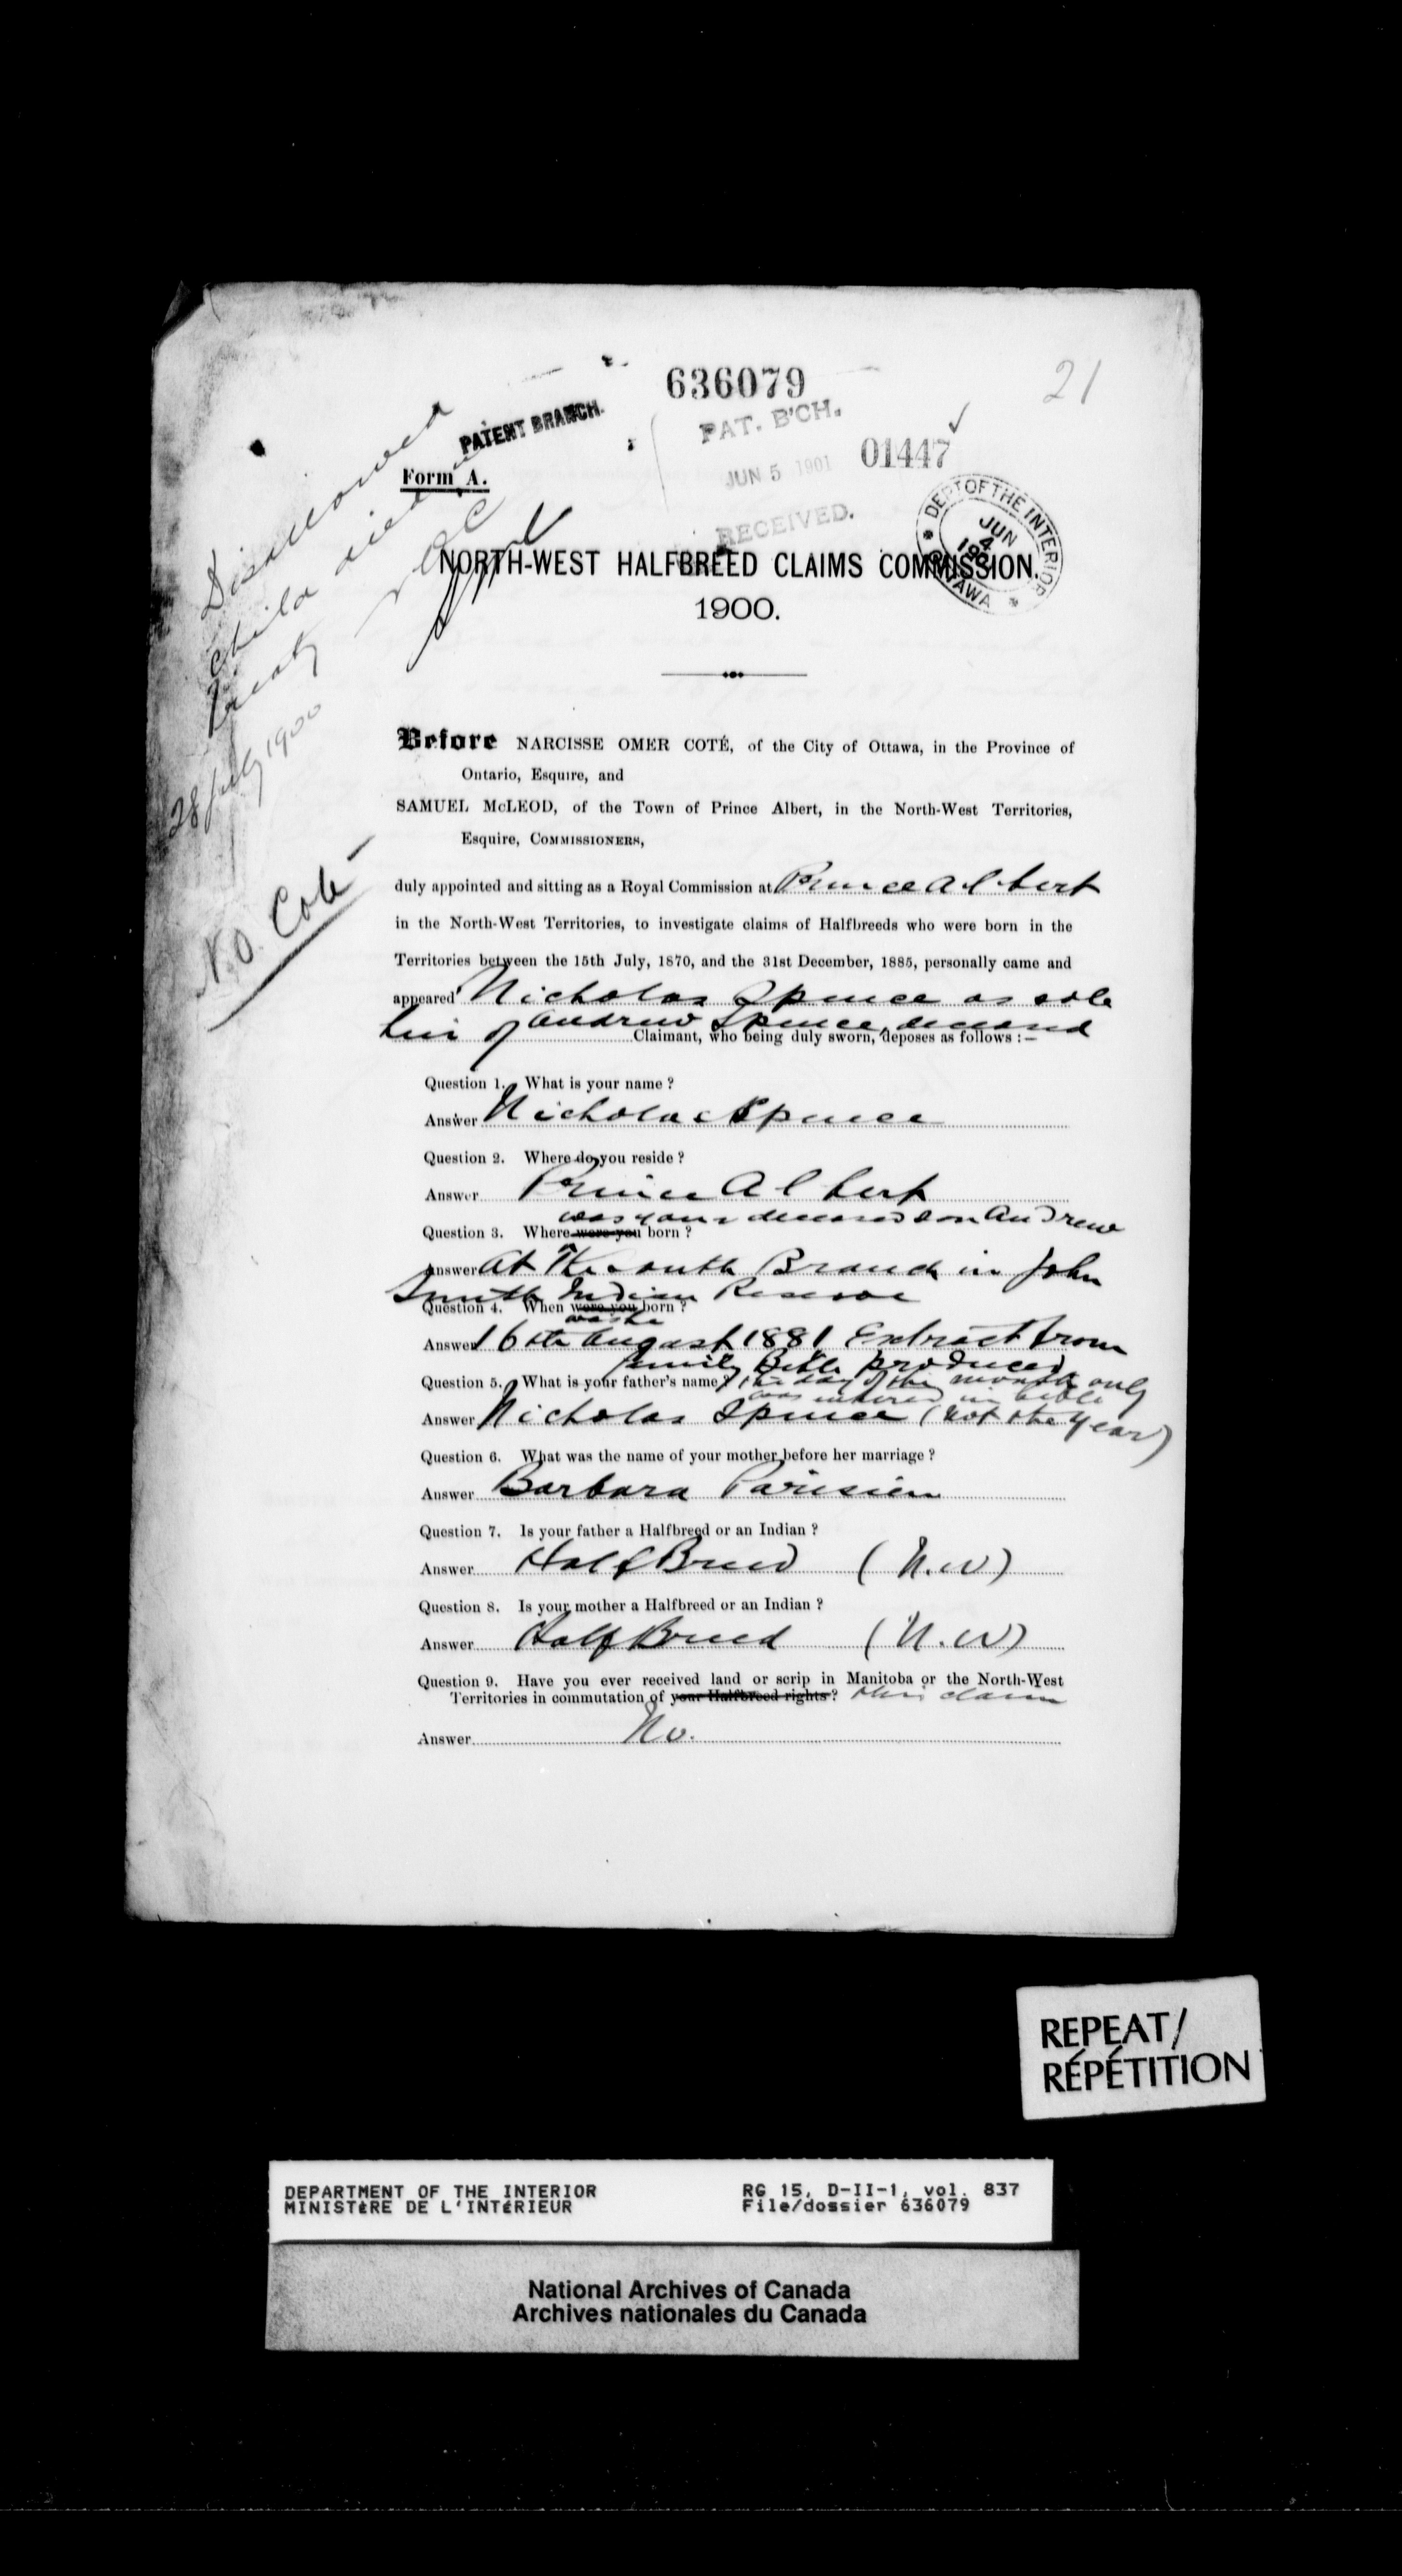 636079
21
PATENT BRANCH.
PAT. B'CH.
01447
Form A.
JUN 5 1901
RECEIVED.
DEPT OF THE INTERIOR
JUN
4
OTTAWA
Disallowed
child died in
treaty
28 July 1900
N.O. Coté
NORTH-WEST HALFBREED CLAIMS COMMISSION.
1900.
Before NARCISSE OMER COTÉ, of the City of Ottawa, in the Province of
Ontario, Esquire, and
SAMUEL McLEOD, of the Town of Prince Albert, in the North-West Territories,
Esquire, COMMISSIONERS,
duly appointed and sitting as a Royal Commission at Prince Albert
in the North-West Territories, to investigate claims of Halfbreeds who were born in the
Territories between the 15th July, 1870, and the 31st December, 1885, personally came and
appeared Nicholas Spence as sole
heir of Andrew Spence, deceased
Claimant, who being duly sworn, deposes as follows :—
Question 1. What is your name ?
Answer Nicholas Spence
Question 2. Where do you reside ?
Answer Prince Albert
was your deceased son Andrew
Question 3. Where were you born ?
Answer At the South Branch in John
Smith Indian Reserve
Question 4. When were you born ?
was he
Answer 16th August 1881 Extract from
family Bible produced
Question 5. What is your father's name ? the day of the month only
was entered in bible
Answer Nicholas Spence (not the year)
Question 6. What was the name of your mother before her marriage ?
Answer Barbara Parisien
Question 7. Is your father a Halfbreed or an Indian ?
Answer Half Breed (N.W)
Question 8. Is your mother a Halfbreed or an Indian ?
Answer Half Breed (N.W)
Question 9. Have you ever received land or scrip in Manitoba or the North-West
Territories in commutation of your Halfbreed rights ? this claim
Answer No.
REPEAT/
RÉPÉTITION
DEPARTMENT OF THE INTERIOR RG 15, D-II-1, vol. 837
MINISTÈRE DE L'INTÉRIEUR File/dossier 636079
National Archives of Canada
Archives nationales du Canada